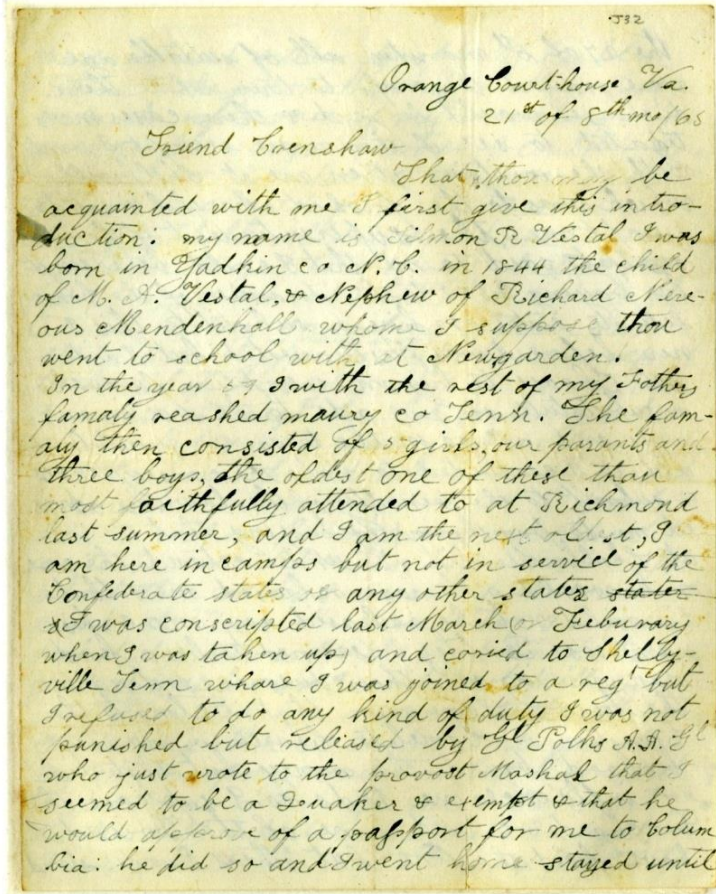 J32
Orange Courthouse Va.
21st of 8th mo/63
Friend Crenshaw
That thou may be
acquainted with me I first give this intro-
duction: my name is Tilmon R Vestal I was
born in Yadkin co N. C. in 1844 the child
of M. A. Vestal, & Nephew of Richard Nere-
ous Mendenhall whome I suppose thou
went to school with at Newgarden.
In the year 59 I with the rest of my Fathers
famaly reashed maury co Tenn. The fam-
aly then consisted of 5 girls, our parants and
three boys, the oldest one of these thau
most faithfully attended to at Richmond
last summer, and I am the next oldest, I
am here in camps but not in servic of the
Confederate states or any other states states
& I was conscripted last March (or Feburary
when I was taken up) and caried to Shelby-
ville Tenn whare I was joined to a regt but
I refused to do any kind of duty I was not
punished but released by Gl Polks A.A. Gl
who just wrote to the provost Mashal that I
seemed to be a Quaker & exempt & that he
would approve of a passport for me to Colum
bia: he did so and I went home stayed until